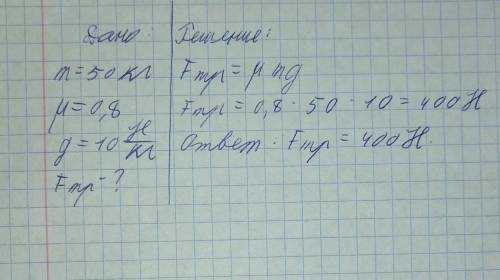 Дано: Решение:
m = 50 кг Fтр = μ mg
μ = 0,8 Fтр = 0,8 · 50 · 10 = 400 Н
g = 10 Н/кг Ответ: Fтр = 400 Н.
Fтр - ?